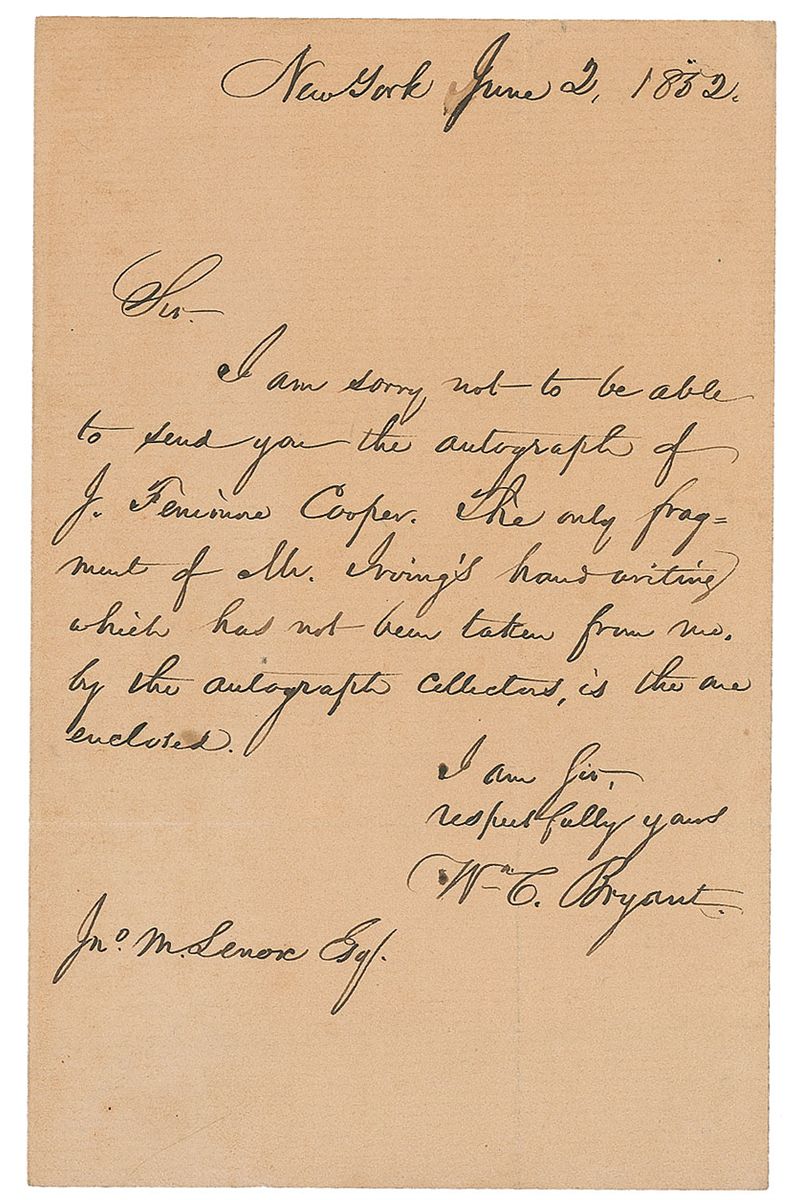 New York June 2, 1852.
Sir.
I am sorry not to be able
to send you the autograph of
J. Fenimore Cooper. The only frag=
ment of Mr. Irving's handwriting
which has not been taken from me.
by the autograph collectors, is the one
enclosed.
I am Sir,
respectfully yours
Wm C. Bryant.
Jno M. Lenox Esq.